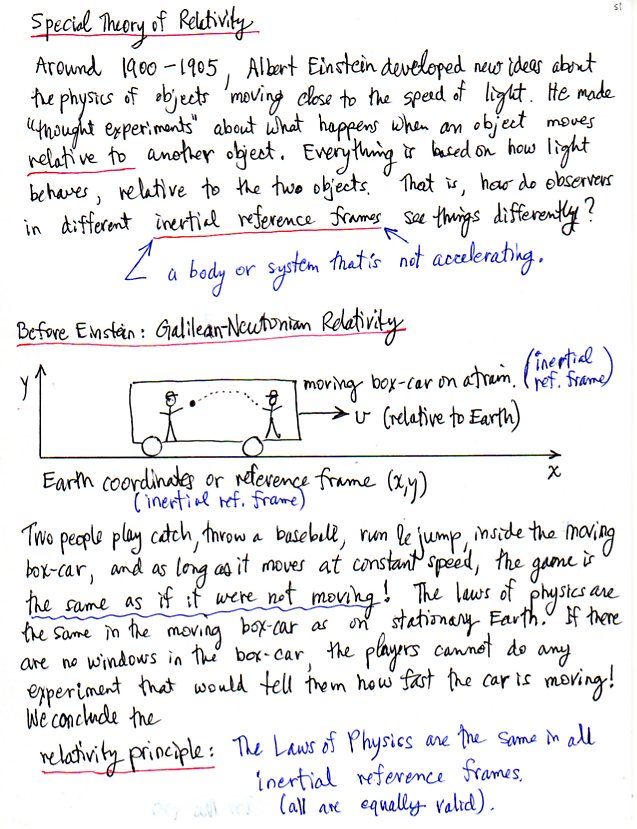 S1
Special Theory of Relativity
Around 1900-1905, Albert Einstein developed new ideas about
the physics of objects moving close to the speed of light. He made
"thought experiments" about what happens when an object moves
relative to another object. Everything is based on how light
behaves, relative to the two objects. That is, how do observers
in different inertial reference frames see things differently?
a body or system that is not accelerating.
Before Einstein: Galilean-Newtonian Relativity
y
moving box-car on a train. (inertial
ref. frame)
v (relative to Earth)
x
Earth coordinates or reference frame (x,y)
(inertial ref. frame)
Two people play catch, throw a baseball, run & jump, inside the moving
box-car, and as long as it moves at constant speed, the game is
the same as if it were not moving! The laws of physics are
the same in the moving box-car as on stationary Earth. If there
are no windows in the box-car, the players cannot do any
experiment that would tell them how fast the car is moving!
We conclude the
relativity principle: The Laws of Physics are the same in all
inertial reference frames.
(all are equally valid).